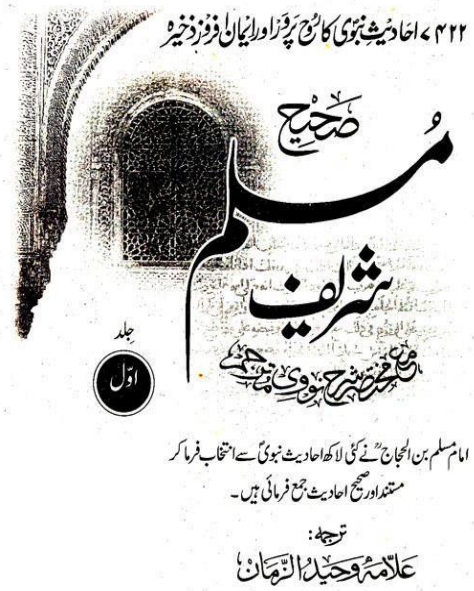 ۷۴۲۲ احادیثِ نبویؐ کا رُوح پرور اور ایمان افروز ذخیرہ
صَحِیح
مُسلم
شریف
مع مختصر شرح نووی مترجم
جلد
اوّل
امام مسلم بن الحجاجؒ نے کئی لاکھ احادیث نبویؐ سے انتخاب فرما کر
مستند اور صحیح احادیث جمع فرمائی ہیں۔
ترجمہ:
علّامہ وحیدُ الزّمان